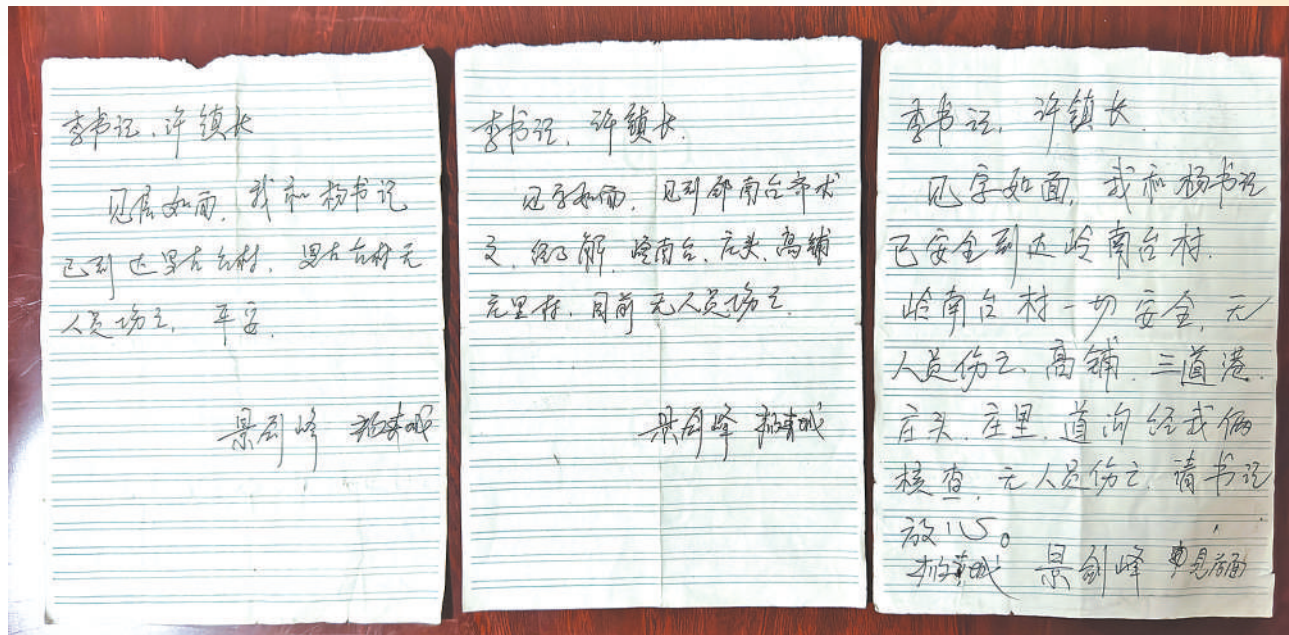 李书记、许镇长
见信如面,我和杨书记
已到达里古台村,里古台村无
人员伤亡,平安。
景剑峰
李书记,许镇长.
见字如面,见到
,经了解,岭南台、庄头、高铺
庄里村,目前无人员伤亡.
景剑峰
李书记,许镇长.
见字如面,我和杨书记
已安全到达岭南台村.
岭南台村一切安全,无
人员伤亡、高铺、三道港、
庄头、庄里、道沟经我俩
核查,无人员伤亡,请书记
放心。
景剑峰